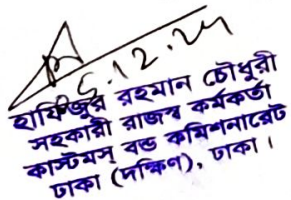 05.12.24
হাফিজুর রহমান চৌধুরী
সহকারী রাজস্ব কর্মকর্তা
কাস্টমস্ বন্ড কমিশনারেট
ঢাকা (দক্ষিণ), ঢাকা।